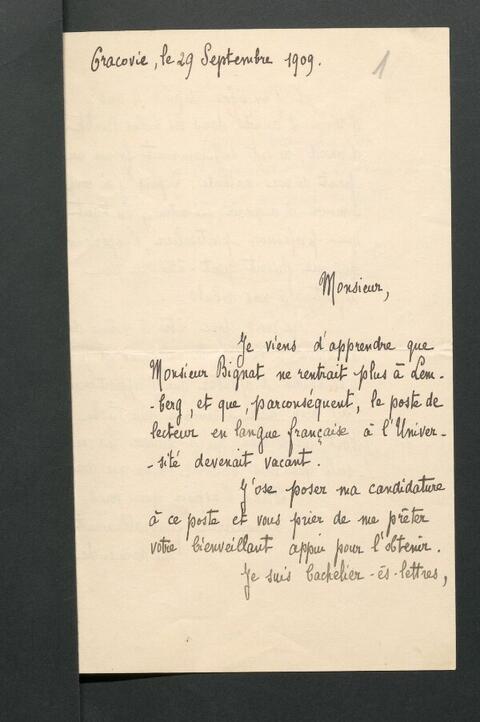 Cracovie, le 29 Septembre 1909.
1
Monsieur,
Je viens d'apprendre que
Monsieur Bignat ne rentrait plus à Lem-
-berg, et que, parconséquent, le poste de
lecteur en langue française à l'Univer-
-sité devenait vacant.
J'ose poser ma candidature
à ce poste et vous prier de me prêter
votre bienveillant appui pour l'obtenir.
Je suis bachelier-ès-lettres,